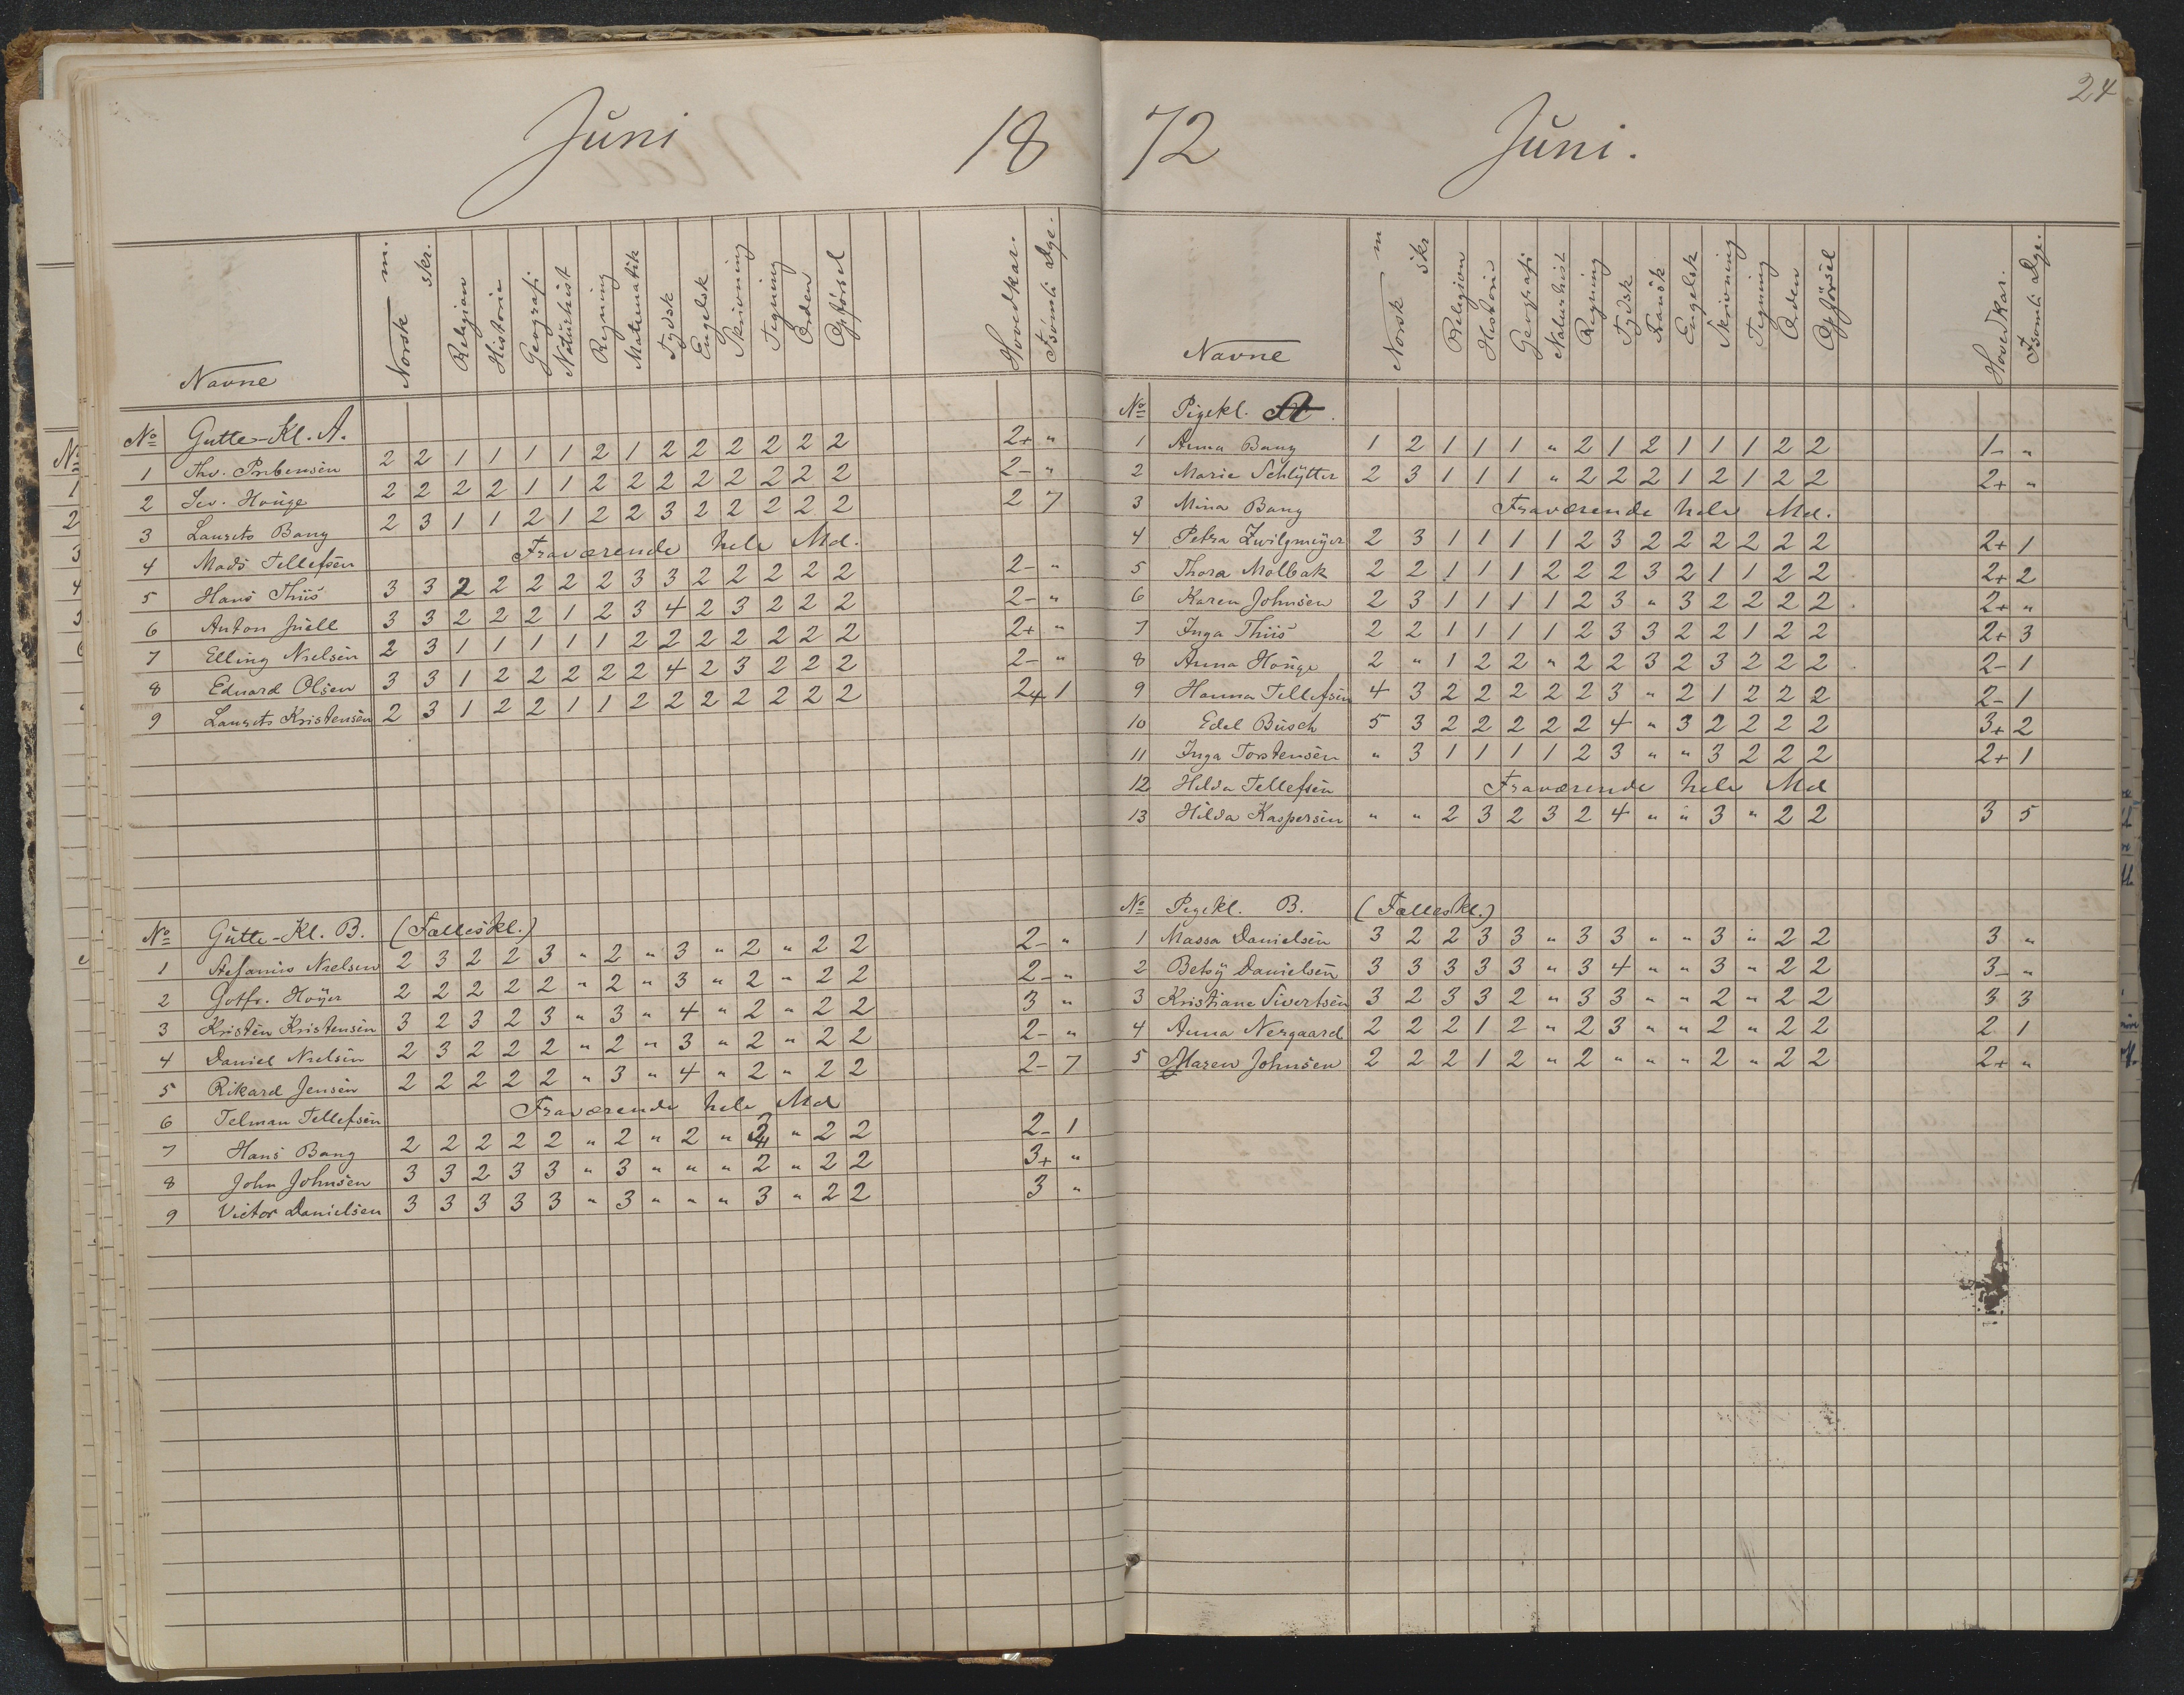 Juni 18
Navne Norsk m. skr. Religion Historie Geografi Naturhist Regning Matematik Tydsk Engelsk Skrivning Tegning Orden Opførsel Hovedkar. Fsömti Dge.
No Gutte-Kl. A.
1 Thv. Prebensen 2 2 1 1 1 1 2 1 2 2 2 2 2 2 2+ "
2 Sev. Houge 2 2 2 2 1 1 2 2 2 2 2 2 2 2 2- "
3 Laurits Bang 2 3 1 1 2 1 2 2 3 2 2 2 2 2 2 7
4 Mads Tellefsen Fraværende hele Md.
5 Hans Thiis 3 3 2 2 2 2 2 3 3 2 2 2 2 2 2- "
6 Anton Juell 3 3 2 2 2 1 2 3 4 2 3 2 2 2 2- "
7 Elling Nielsen 2 3 1 1 1 1 1 2 2 2 2 2 2 2 2+ "
8 Eduard Olsen 3 3 1 2 2 2 2 2 4 2 3 2 2 2 2- "
9 Laurits Kristensen 2 3 1 2 2 1 1 2 2 2 2 2 2 2 2+ 1
No Gutte-Kl. B. (Fælleskl.)
1 Stefanius Nielsen 2 3 2 2 3 " 2 " 3 " 2 " 2 2 2- "
2 Gotfr. Høyer 2 2 2 2 2 " 2 " 3 " 2 " 2 2 2- "
3 Kristen Kristensen 3 2 3 2 3 " 3 " 4 " 2 " 2 2 3 "
4 Daniel Nielsen 2 3 2 2 2 " 2 " 3 " 2 " 2 2 2- "
5 Rikard Jensen 2 2 2 2 2 " 3 " 4 " 2 " 2 2 2- 7
6 Telman Tellefsen Fraværende hele Md
7 Hans Bang 2 2 2 2 2 " 2 " 2 " 2 " 2 2 2- 1
8 John Johnsen 3 3 2 3 3 " 3 " " " 2 " 2 2 3+ "
9 Victor Danielsen 3 3 3 3 3 " 3 " " " 3 " 2 2 3 "
24
72 Juni.
Navne Norsk m skr Religion Historie Geografi Naturhist Regning Tydsk Fransk Engelsk Skrivning Tegning Orden Opførsel Hovedkar. Fsomti Dge.
No Pigekl. A.
1 Anna Bang 1 2 1 1 1 " 2 1 2 1 1 1 2 2 1- "
2 Marie Schlytter 2 3 1 1 1 " 2 2 2 1 2 1 2 2 2+ "
3 Mina Bang Fraværende hele Md.
4 Petra Zwilgmeyer 2 3 1 1 1 1 2 3 2 2 2 2 2 2 2+ 1
5 Thora Molbak 2 2 1 1 1 2 2 2 3 2 1 1 2 2 2+ 2
6 Karen Johnsen 2 3 1 1 1 1 2 3 " 3 2 2 2 2 2+ "
7 Inga Thiis 2 2 1 1 1 1 2 3 3 2 2 1 2 2 2+ 3
8 Anna Houge 2 " 1 2 2 " 2 2 3 2 3 2 2 2 2- 1
9 Hanna Tellefsen 4 3 2 2 2 2 2 3 " 2 1 2 2 2 2- 1
10 Edel Busch 5 3 2 2 2 2 2 4 " 3 2 2 2 2 3+ 2
11 Inga Torstensen " 3 1 1 1 1 2 3 " " 3 2 2 2 2+ 1
12 Hilda Tellefsen Fraværende hele Md
13 Hilda Kaspersen " " 2 3 2 3 2 4 " " 3 " 2 2 3 5
No Pigekl. B. (Fælleskl.)
1 Massa Danielsen 3 2 2 3 3 " 3 3 " " 3 " 2 2 3 "
2 Betsy Danielsen 3 3 3 3 3 " 3 4 " " 3 " 2 2 3- "
3 Kristiane Sivertsen 3 2 3 3 2 " 3 3 " " 2 " 2 2 3 3
4 Anna Nergaard 2 2 2 1 2 " 2 3 " " 2 " 2 2 2 1
5 Maren Johnsen 2 2 2 1 2 " 2 " " " 2 " 2 2 2+ "